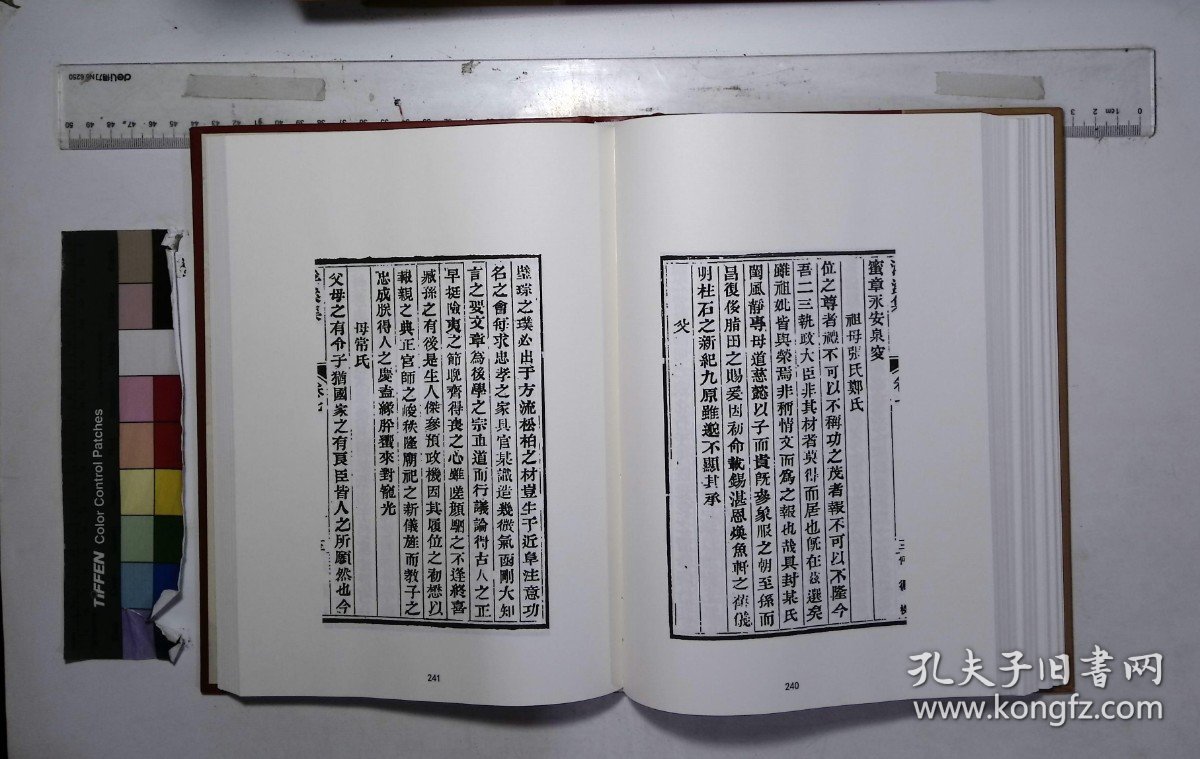 蜜章永安泉窔
祖母張氏鄭氏
位之尊者禮不可以不稱功之茂者報不可以不隆今
吾二三執政大臣非其材者莫得而居也旣在茲選矣
雖祖妣皆與榮焉非稱情文而爲之報也哉具封某氏
閫風靜專母道慈懿以子而貴旣參象服之朝至孫而
昌復侈腊田之賜爰因初命載錫湛恩煥魚軒之舊儀
明杜石之新紀九原雖邈不顯其承
父
璧琮之璞必出于方流松柏之材豈生于近阜注意功
名之會每求忠孝之家具官某識造幾微氣函剛大知
言之要文章為後學之宗直道而行議論得古人之正
早挺險夷之節晚齊得喪之心雖嗟顏駟之不逢終喜
臧孫之有後是生人傑參預政機因其履位之初懋以
報親之典正官師之峻秩隆廟祀之新儀旌而教子之
忠成朕得人之慶
來對寵光
母常氏
父母之有令子猶國家之有良臣皆人之所願然也今
241
240
TIFFEN Color Control Patches
deli得力 No 6250
孔夫子旧書网
www.kongfz.com